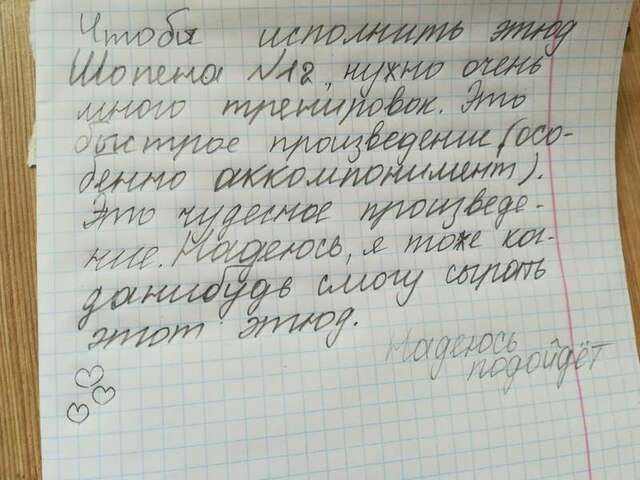 Чтобы исполнить этюд
Шопена №12, нужно очень
много тренировок. Это
быстрое произведение (осо-
бенно аккомпонимент).
Это чудесное произведе-
ние. Надеюсь, я тоже ког-
данибудь смогу сыграть
этот этюд.
Надеюсь
подойдёт